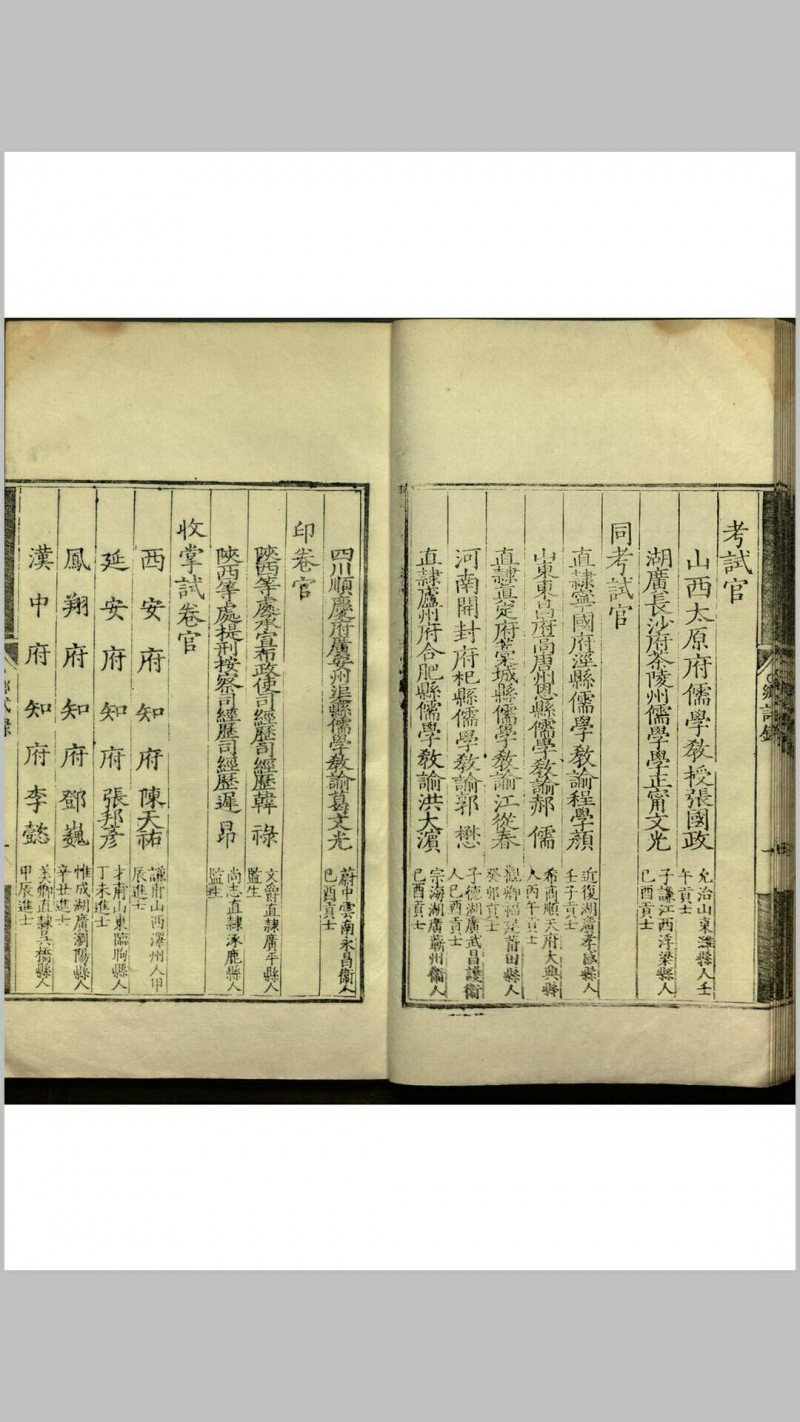 考試官
山西太原府儒學教授張國政
允治山東濰縣人壬
午貢士
湖廣長沙府茶陵州儒學學正甯文光
子謙江西浮梁縣人
己酉貢士
同考試官
直隸寧國府涇縣儒學教諭程學顏
近復湖廣孝感縣人
壬子貢士
山東東昌府高唐州恩縣儒學教諭郝儒
希商順天府大興縣
人丙午貢士
直隸真定府藁城縣儒學教諭江從春
卿福建莆田縣人
癸卯貢士
河南開封府杞縣儒學教諭郭懋
子德湖廣武昌護衛
人己酉貢士
直隸廬州府合肥縣儒學教諭洪大濱
宗海湖廣蘄州衛人
己酉貢士
四川順慶府廣安州渠縣儒學教諭葛文光
蔚中雲南永昌衛人
己酉貢士
印卷官
陝西等處承宣布政使司經歷司經歷韓祿
文爵直隸廣平縣人
監生
陝西等處提刑按察司經歷司經歷遲昂
尚志直隸涿鹿縣人
監生
收掌試卷官
西安府知府陳天祐
謙甫山西澤州人甲
辰進士
延安府知府張邦彥
才甫山東臨朐縣人
丁未進士
鳳翔府知府鄧巍
惟成湖廣瀏陽縣人
辛丑進士
漢中府知府李懿
美卿直隸吳橋縣人
甲辰進士
鄉試錄